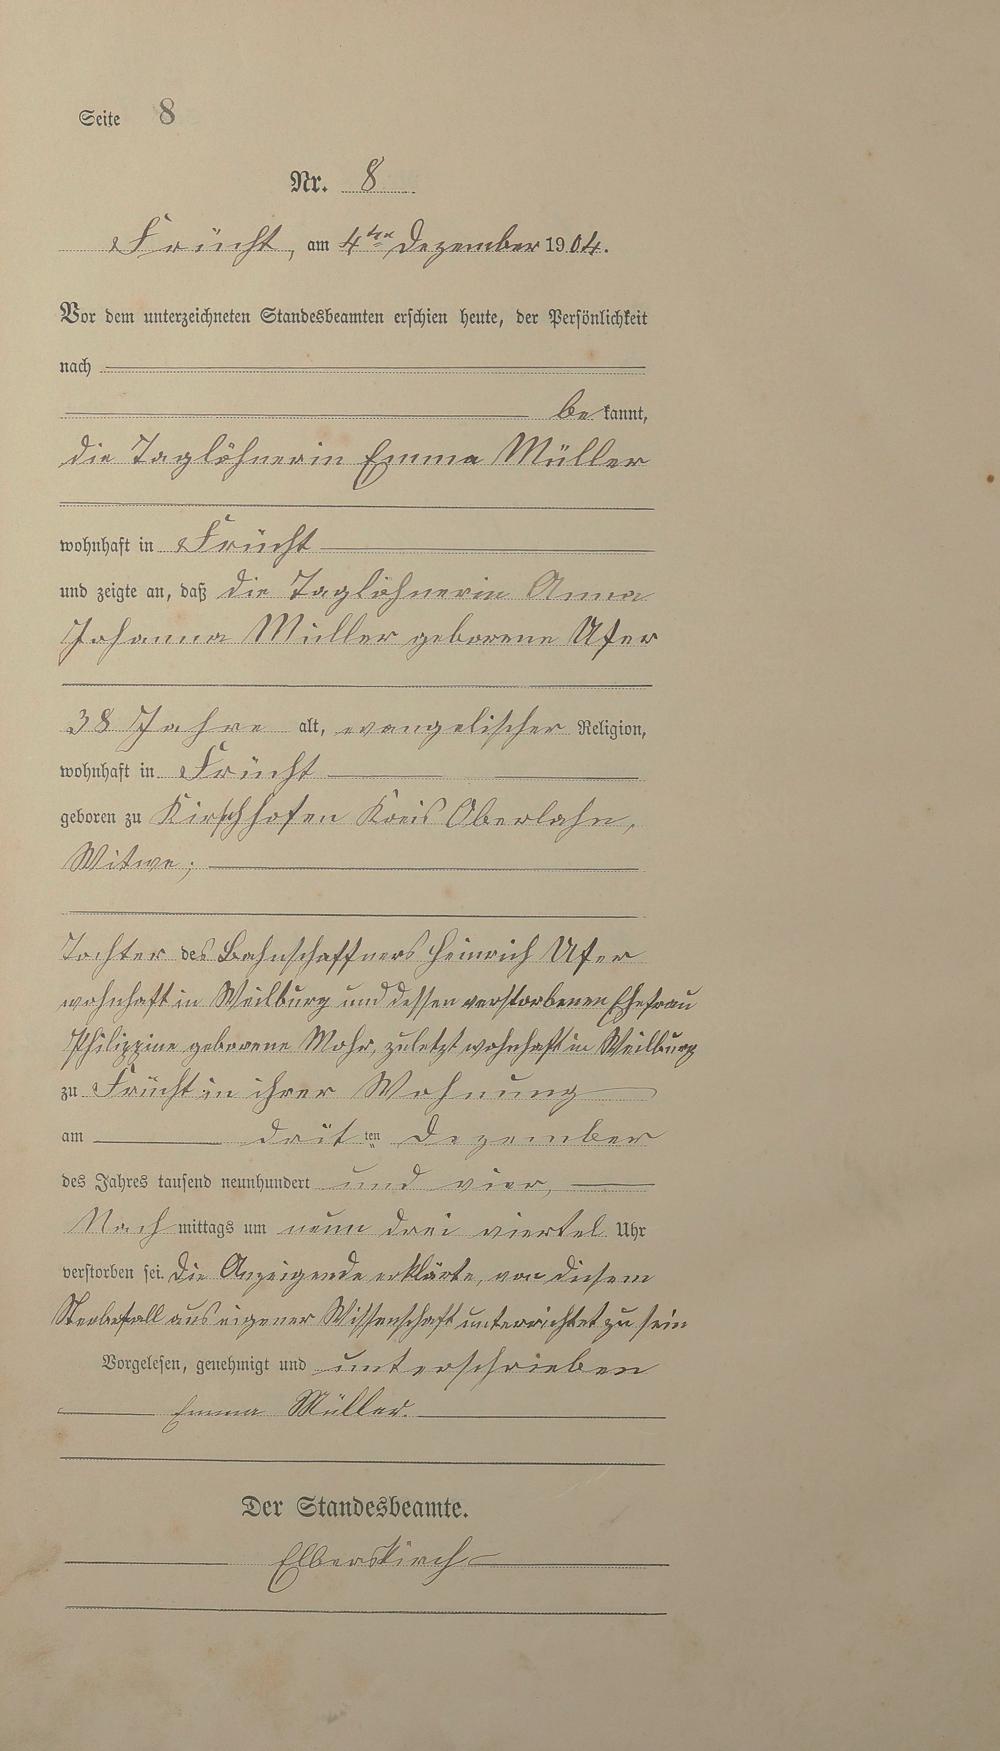 Seite 8
Nr. 8
Frücht, am 4ten Dezember 1904.
Vor dem unterzeichneten Standesbeamten erschien heute, der Persönlichkeit
nach
bekannt,
die Taglöhnerin Emma Müller
wohnhaft in Frücht
und zeigte an, daß die Taglöhnerin Anna
Johanna Müller geborene Ufer
38 Jahre alt, evangelischer Religion,
wohnhaft in Frücht
geboren zu Kirschhofen Kreis Oberlahn,
Witwe;
Tochter des Bahnschaffners Heinrich Ufer
wohnhaft in Weilburg und dessen verstorbenen Ehefrau
Philippine geborene Mohr, zuletzt wohnhaft in Weilburg
zu Frücht in ihrer Wohnung
am dritten Dezember
des Jahres tausend neunhundert und vier,
Nachmittags um neun drei viertel Uhr
verstorben sei. Die Anzeigende erklärte, von diesem
Sterbefall aus eigener Wissenschaft unterrichtet zu sein
Vorgelesen, genehmigt und unterschrieben
Emma Müller.
Der Standesbeamte.
Elberskirch